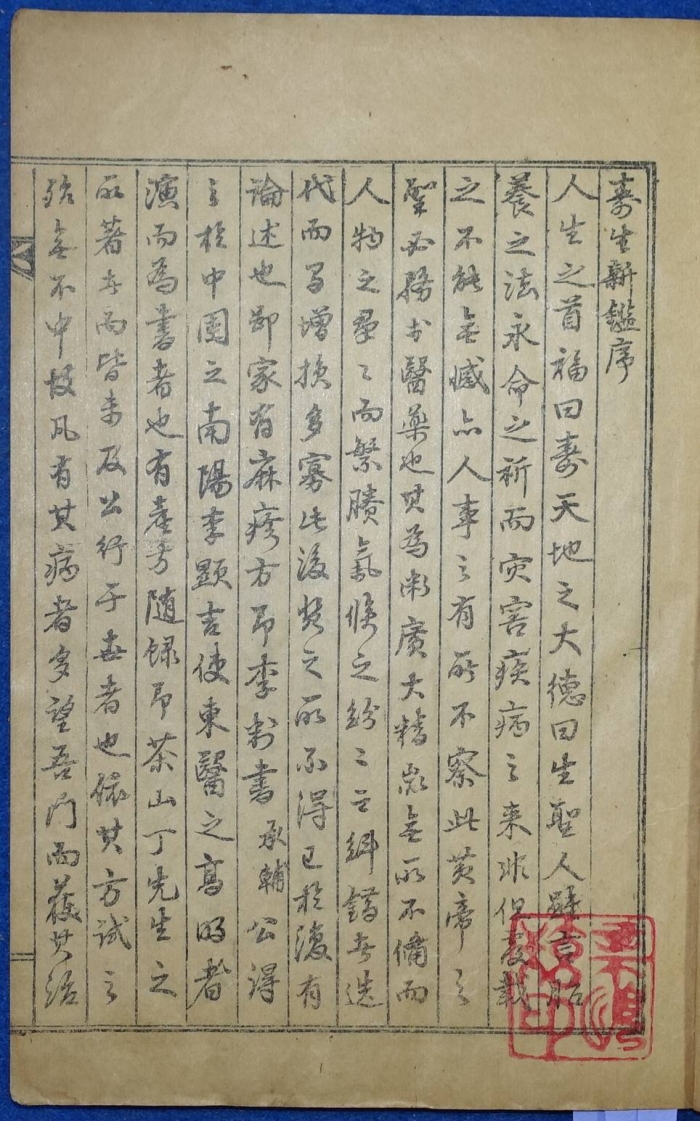 壽生新鑑序
人生之首福曰壽天地之大德曰生聖人雖言胎
養之法永命之祈而灾害疾病之来非但覆載
之不能無憾亦人事之有所不察此黃帝之
聖而務於醫藥也其為術廣大精微無所不備而
人物之羣々而繁賾氣候之紛々之舛錯世迭
代而多寡此後賢之所不得已於復有
論述也鄙家有麻疹方即李尙書承輔公得
之於中國之南陽李顯吉使東醫之高明者
演而為書者也有方隨錄即茶山丁先生之
所著书而皆未及公行于世者也依其方試之
殆無不中故凡有其病者多望吾門而獲其治